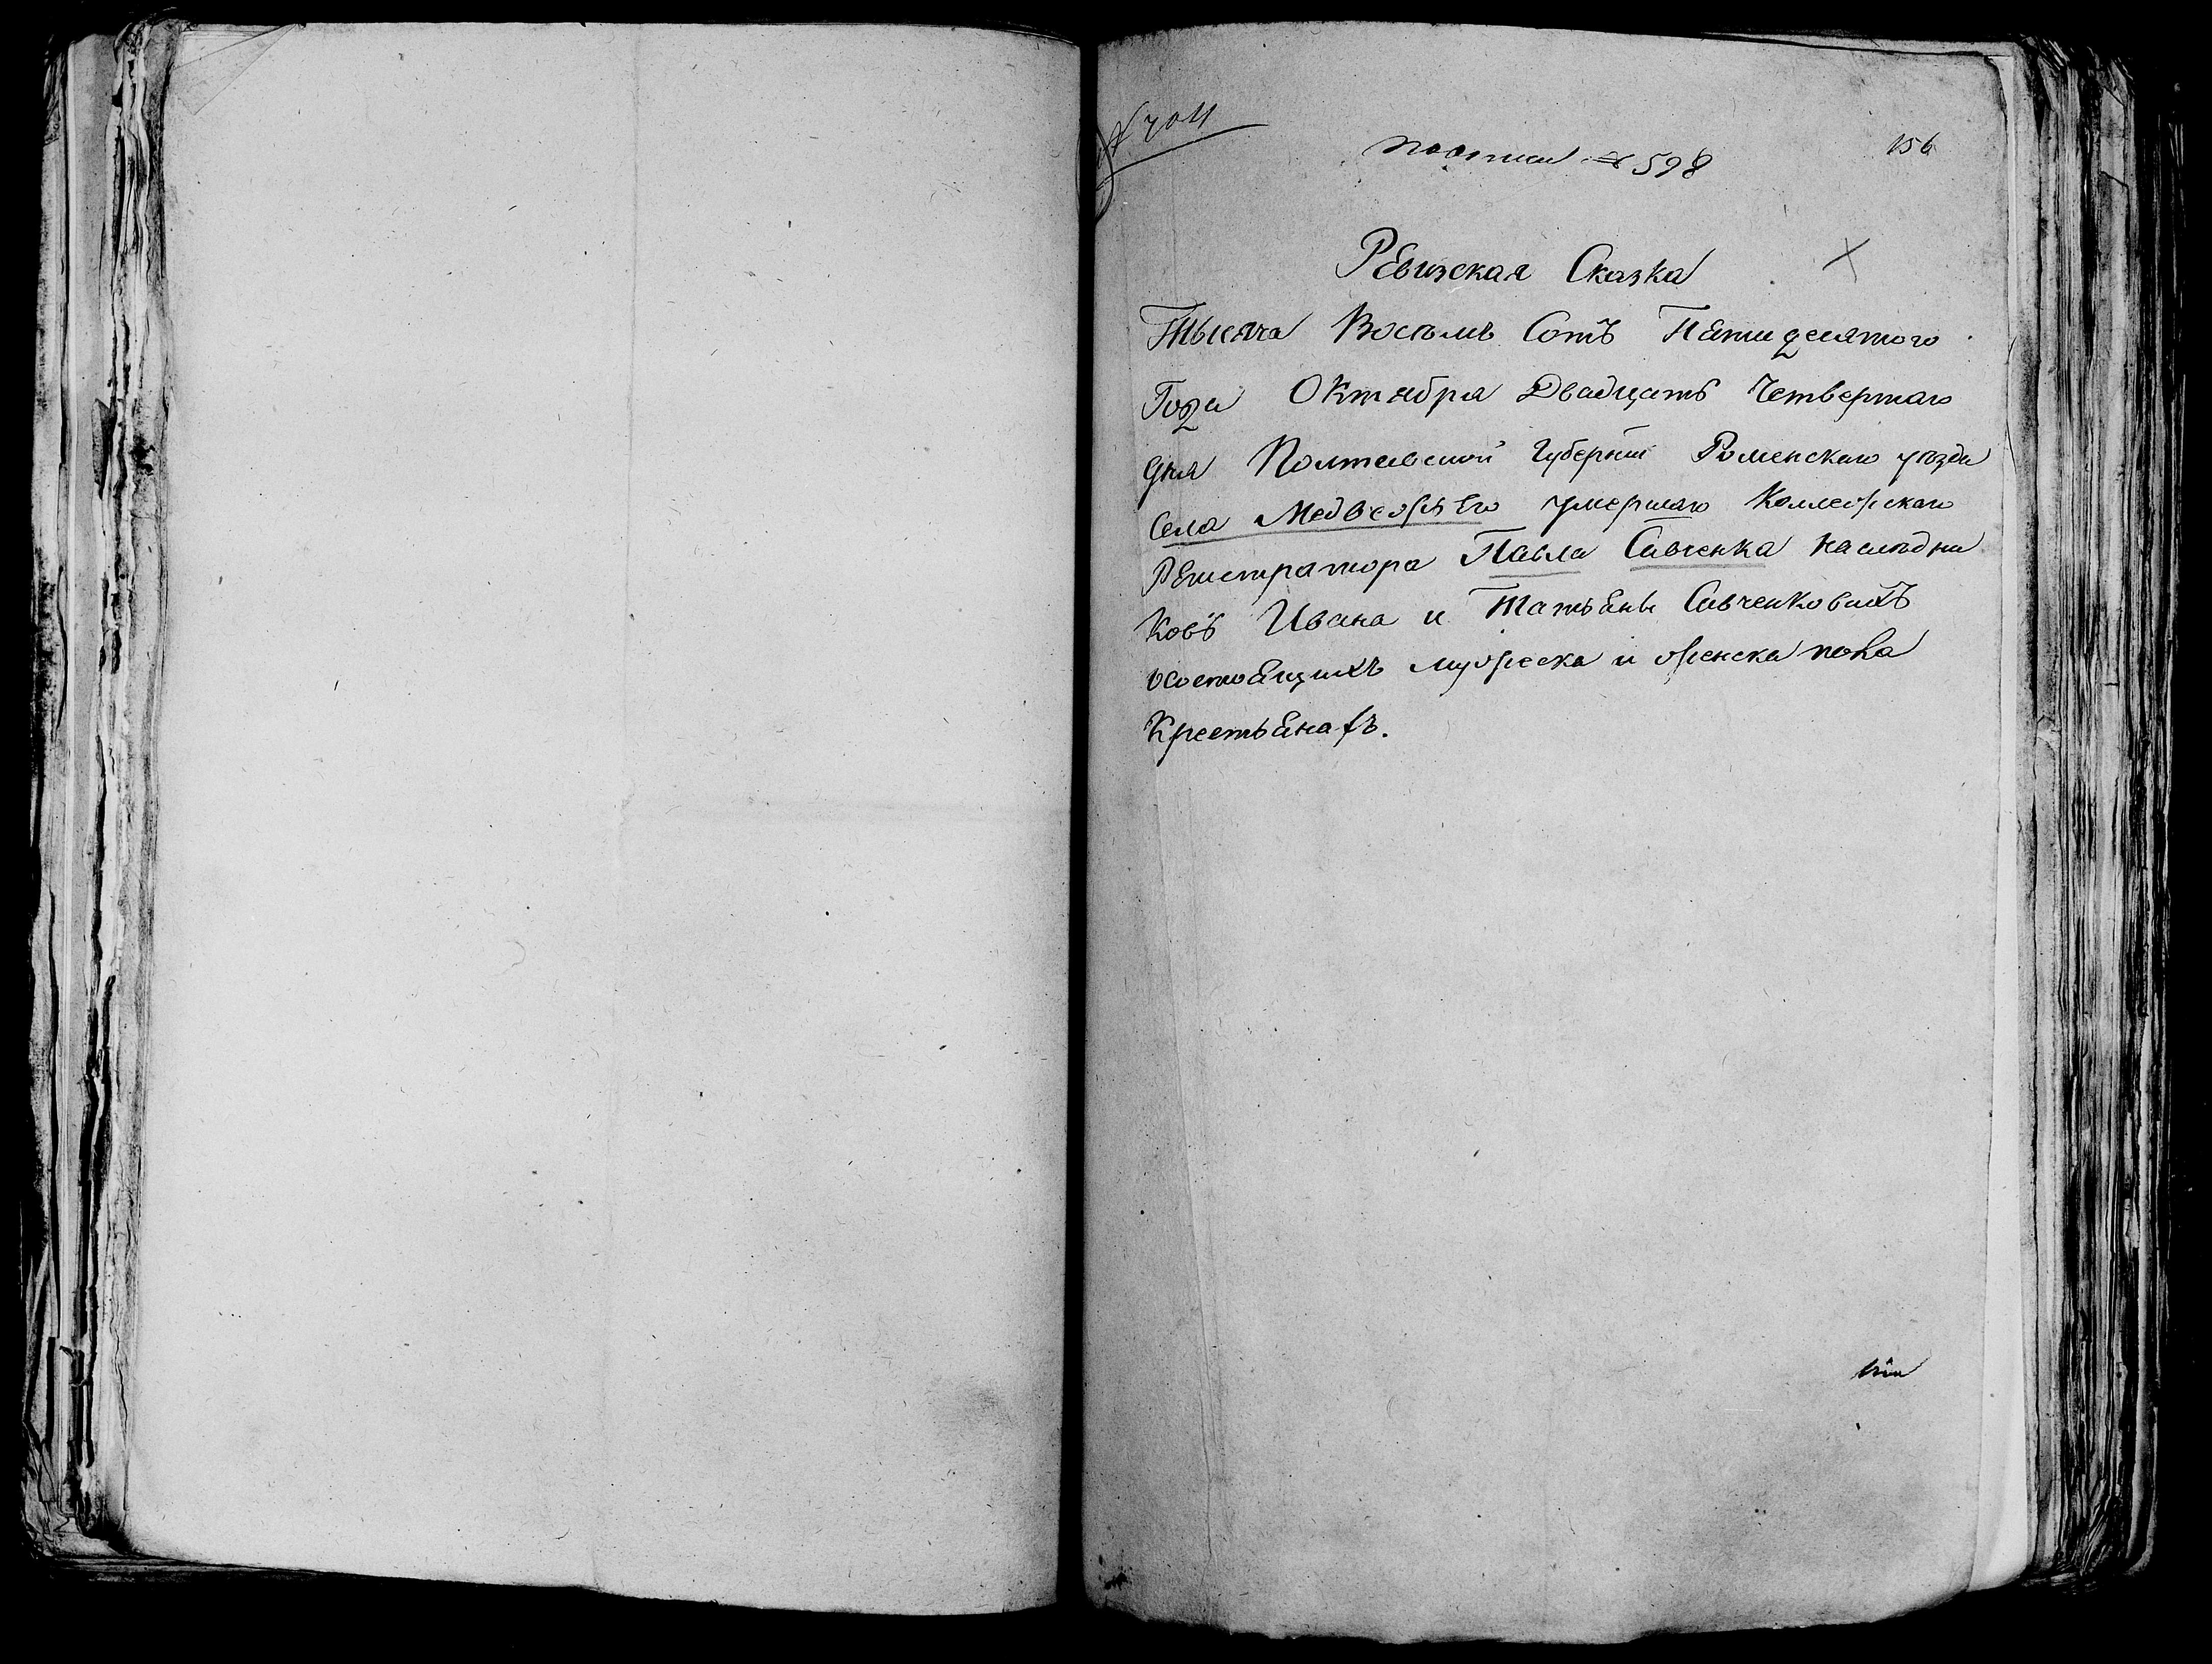 № 704
по описи № 598
156
Ревизская Сказка
Тысяча Восемь Сотъ Пятидесятого
Года Октября Двадцать Четвертаго
дня Полтавской Губерніи Роменскаго уѣзда
Села Медвежъего умершаго Коллежскаго
Регистратора Павла Савченка наслѣдни
ковъ Ивана и Татьяны Савченковыхъ
состоящихъ мужеска и женска пола
Крестьянахъ.